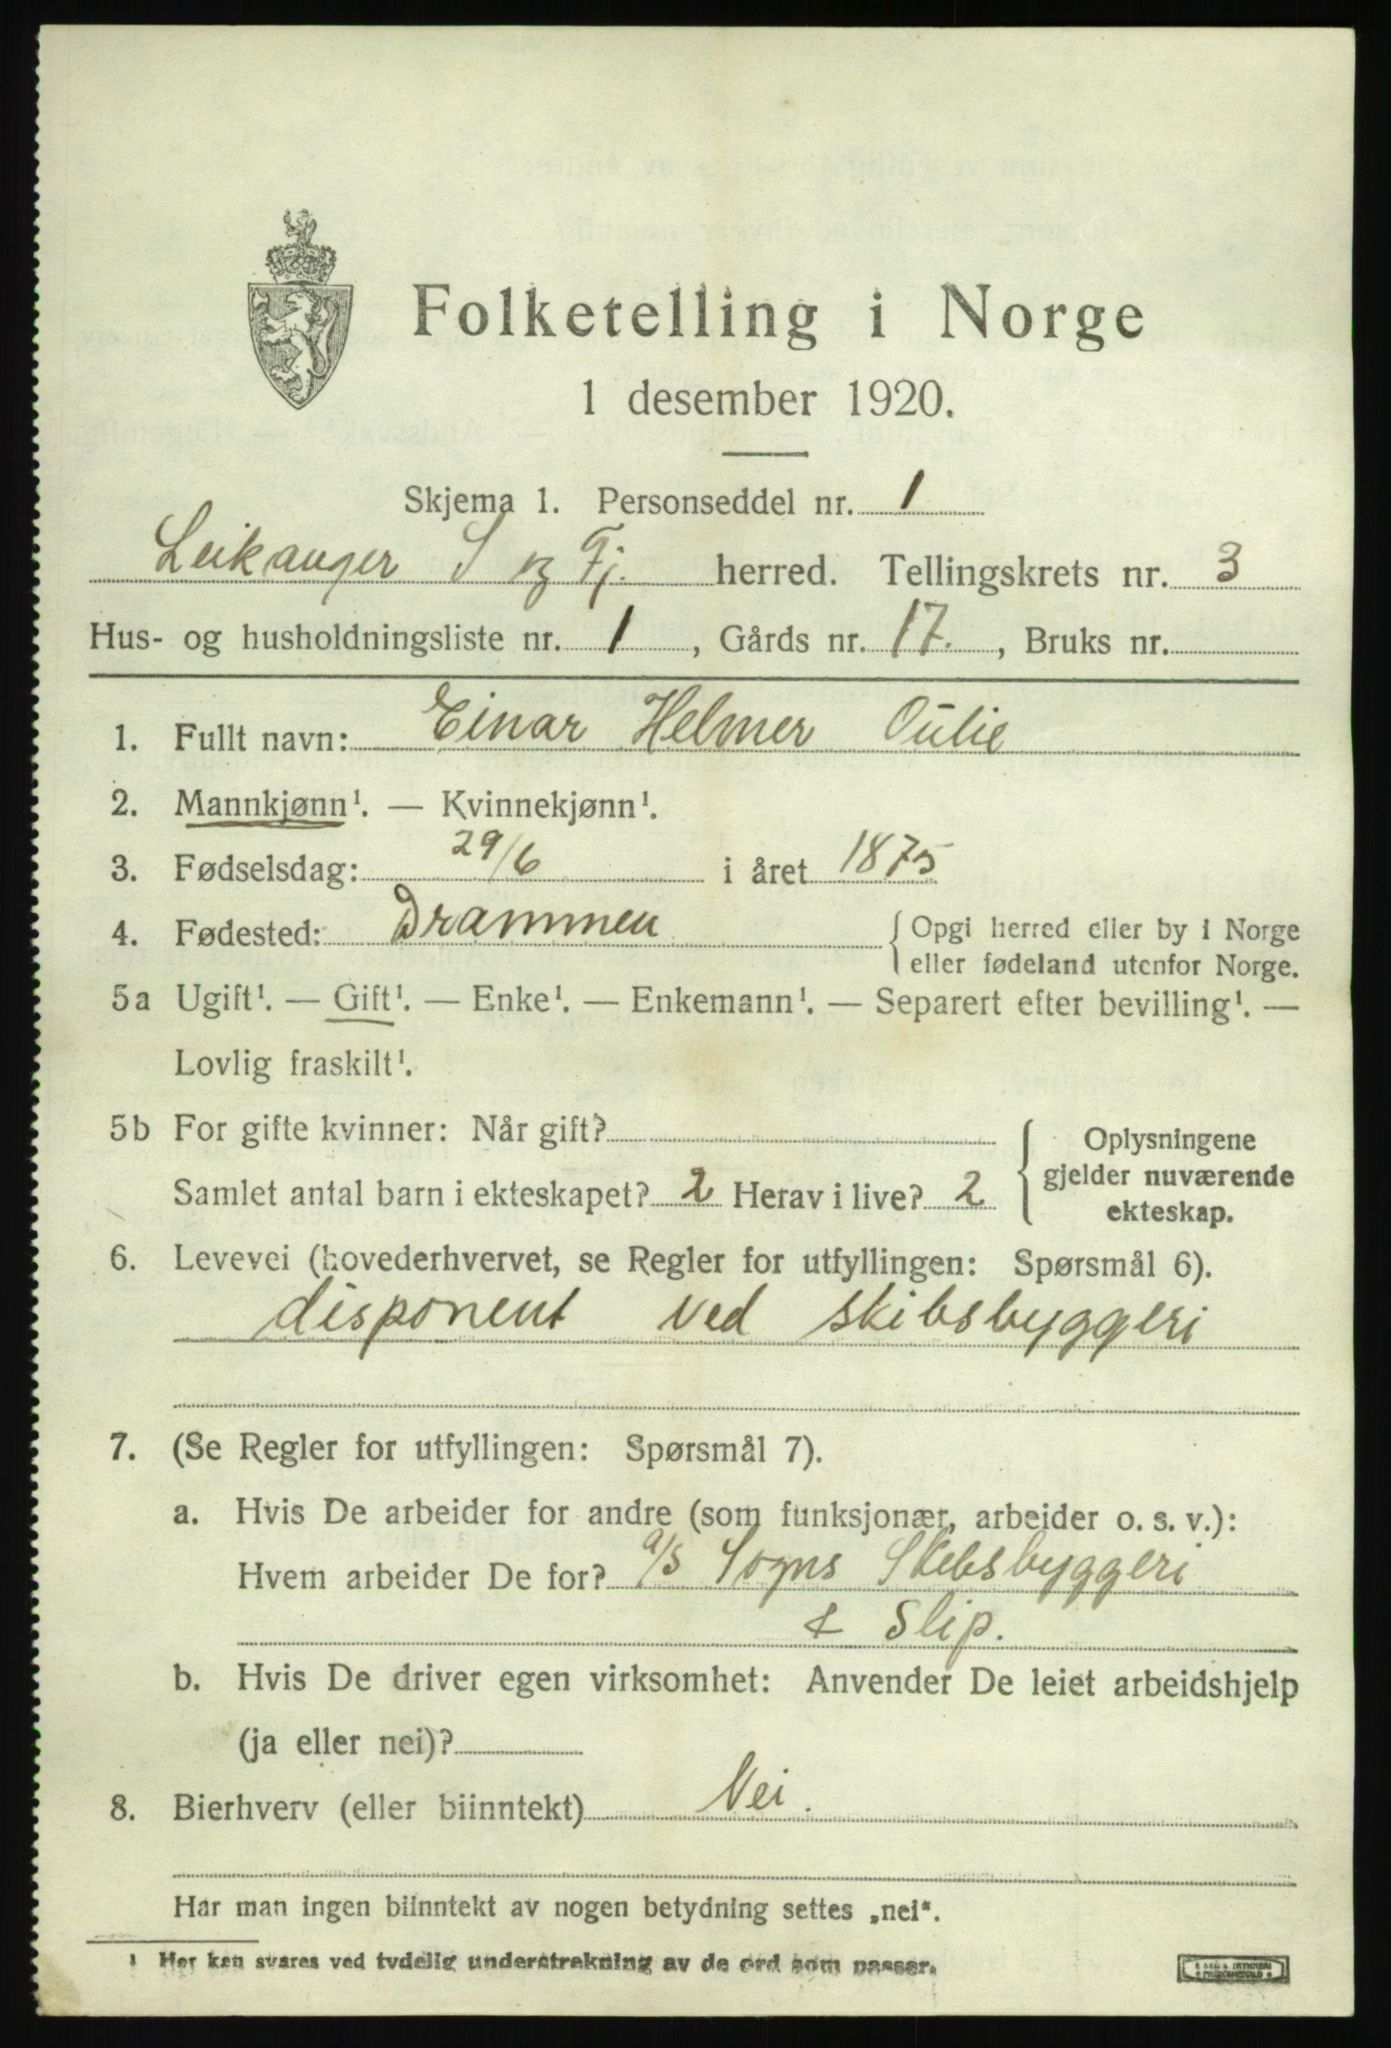 Folketelling i Norge
1 desember 1920.
Skjema 1. Personseddel nr. 1
Leikanger S og Fj. herred. Tellingskrets nr. 3
Hus- og husholdningsliste nr. 1, Gårds nr. 17., Bruks nr.
1. Fullt navn: Einar Helmer Oulie
2. Mannkjønn¹. — Kvinnekjønn¹.
3. Fødselsdag: 29/6 i året 1875
4. Fødested: Drammen { Opgi herred eller by i Norge
eller fødeland utenfor Norge.
5a Ugift¹. — Gift¹. — Enke¹. — Enkemann¹. — Separert efter bevilling¹. —
Lovlig fraskilt¹.
5b For gifte kvinner: Når gift?
Samlet antal barn i ekteskapet? 2 Herav i live? 2
{ Oplysningene
gjelder nuværende
ekteskap.
6. Levevei (hovederhvervet, se Regler for utfyllingen: Spørsmål 6).
disponent ved skibsbyggeri
7. (Se Regler for utfyllingen: Spørsmål 7).
a. Hvis De arbeider for andre (som funksjonær, arbeider o. s. v.):
Hvem arbeider De for? a/s Sogns Skibsbyggeri
& Slip.
b. Hvis De driver egen virksomhet: Anvender De leiet arbeidshjelp
(ja eller nei)?
8. Bierhverv (eller biinntekt) Nei.
Har man ingen biinntekt av nogen betydning settes „nei“.
¹ Her kan svares ved tydelig understrekning av de ord som passer.